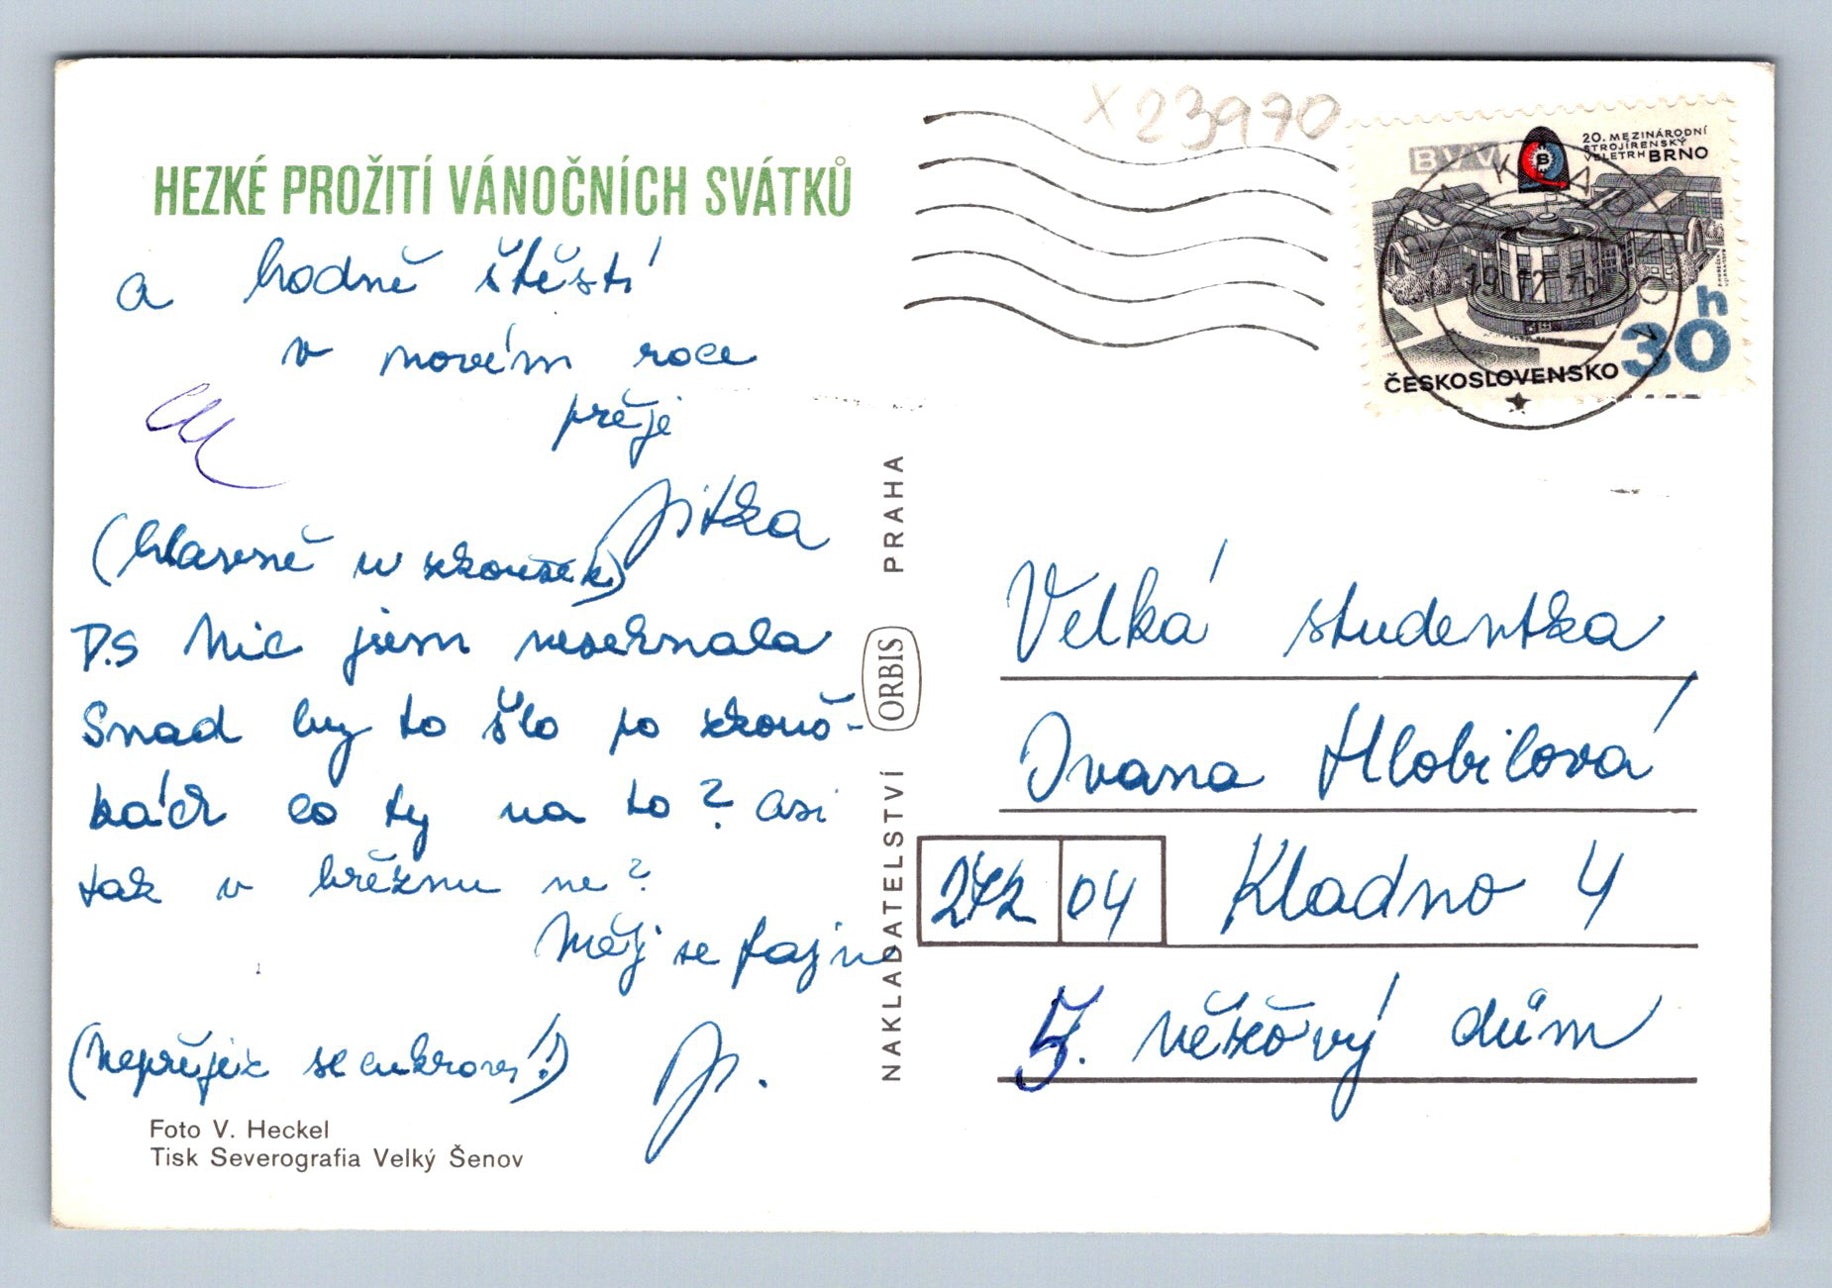 HEZKÉ PROŽITÍ VÁNOČNÍCH SVÁTKŮ
a hodně štěstí
v novém roce
přeje
Jitka
(hlavně u zkoušek)
P.S Nic jsem nesehnala
Snad by to šlo po zkouš-
kách co ty na to? asi
tak v březnu ne?
Měj se fajn
(Nepřejez se cukroví!)
J.
Foto V. Heckel
Tisk Severografia Velký Šenov
NAKLADATELSTVÍ ORBIS PRAHA
X23970
BVV
20. MEZINÁRODNÍ
STROJÍRENSKÝ
VELETRH BRNO
30h
ČESKOSLOVENSKO
Velká studentka
Ivana Hlobilová
272 04 Kladno 4
5. věžový dům